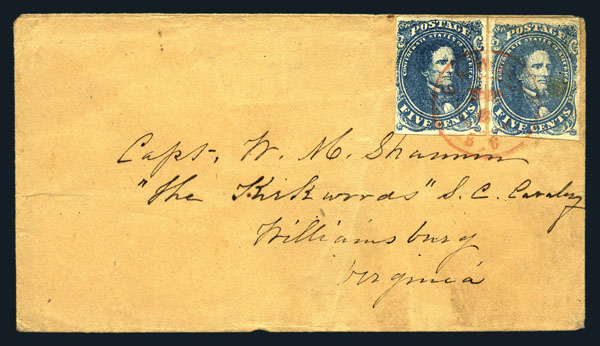 POSTAGE POSTAGE
CONFEDERATE STATES OF AMERICA CONFEDERATE STATES OF AMERICA
FIVE CENTS FIVE CENTS
S C
Capt. W. M. Shannon
"The Kirkwoods" S. C. Cavalry
Williamsburg
Virginia